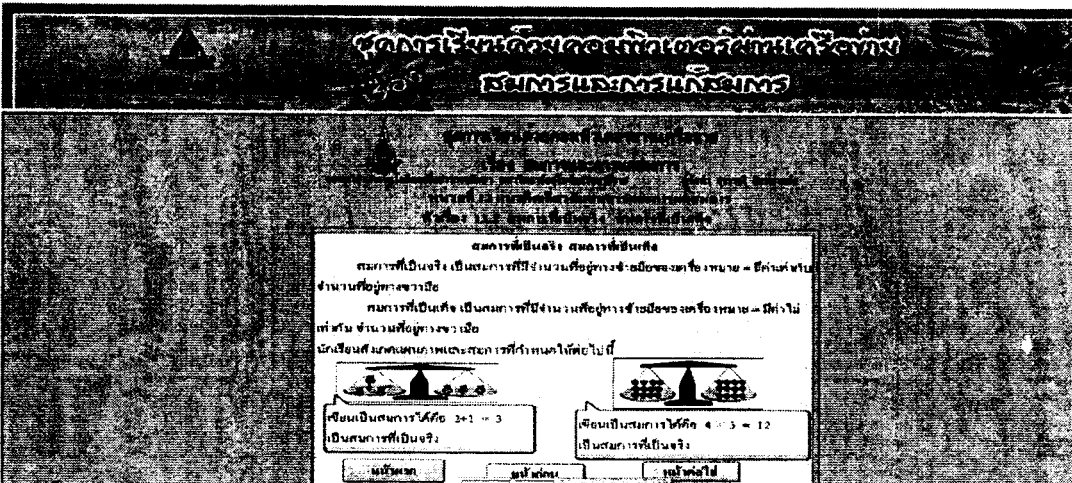 ชุดการเรียนด้วยคอมพิวเตอร์ผ่านเครือข่าย
สมการและการแก้สมการ
ชุดการเรียนด้วยคอมพิวเตอร์ผ่านเครือข่าย
เรื่อง สมการและการแก้สมการ
สมการที่เป็นจริง สมการที่เป็นเท็จ
สมการที่เป็นจริง เป็นสมการที่มีจำนวนที่อยู่ทางซ้ายมือของเครื่องหมาย = มีค่าเท่ากับ
จำนวนที่อยู่ทางขวามือ
สมการที่เป็นเท็จ เป็นสมการที่มีจำนวนที่อยู่ทางซ้ายมือของเครื่องหมาย = มีค่าไม่
เท่ากับ จำนวนที่อยู่ทางขวามือ
นักเรียนสังเกตแผนภาพและสมการที่กำหนดให้ต่อไปนี้
เขียนเป็นสมการได้คือ 2+1 = 3
เป็นสมการที่เป็นจริง
เขียนเป็นสมการได้คือ 4 × 3 = 12
เป็นสมการที่เป็นจริง
หน้าแรก
หน้าก่อน
หน้าต่อไป